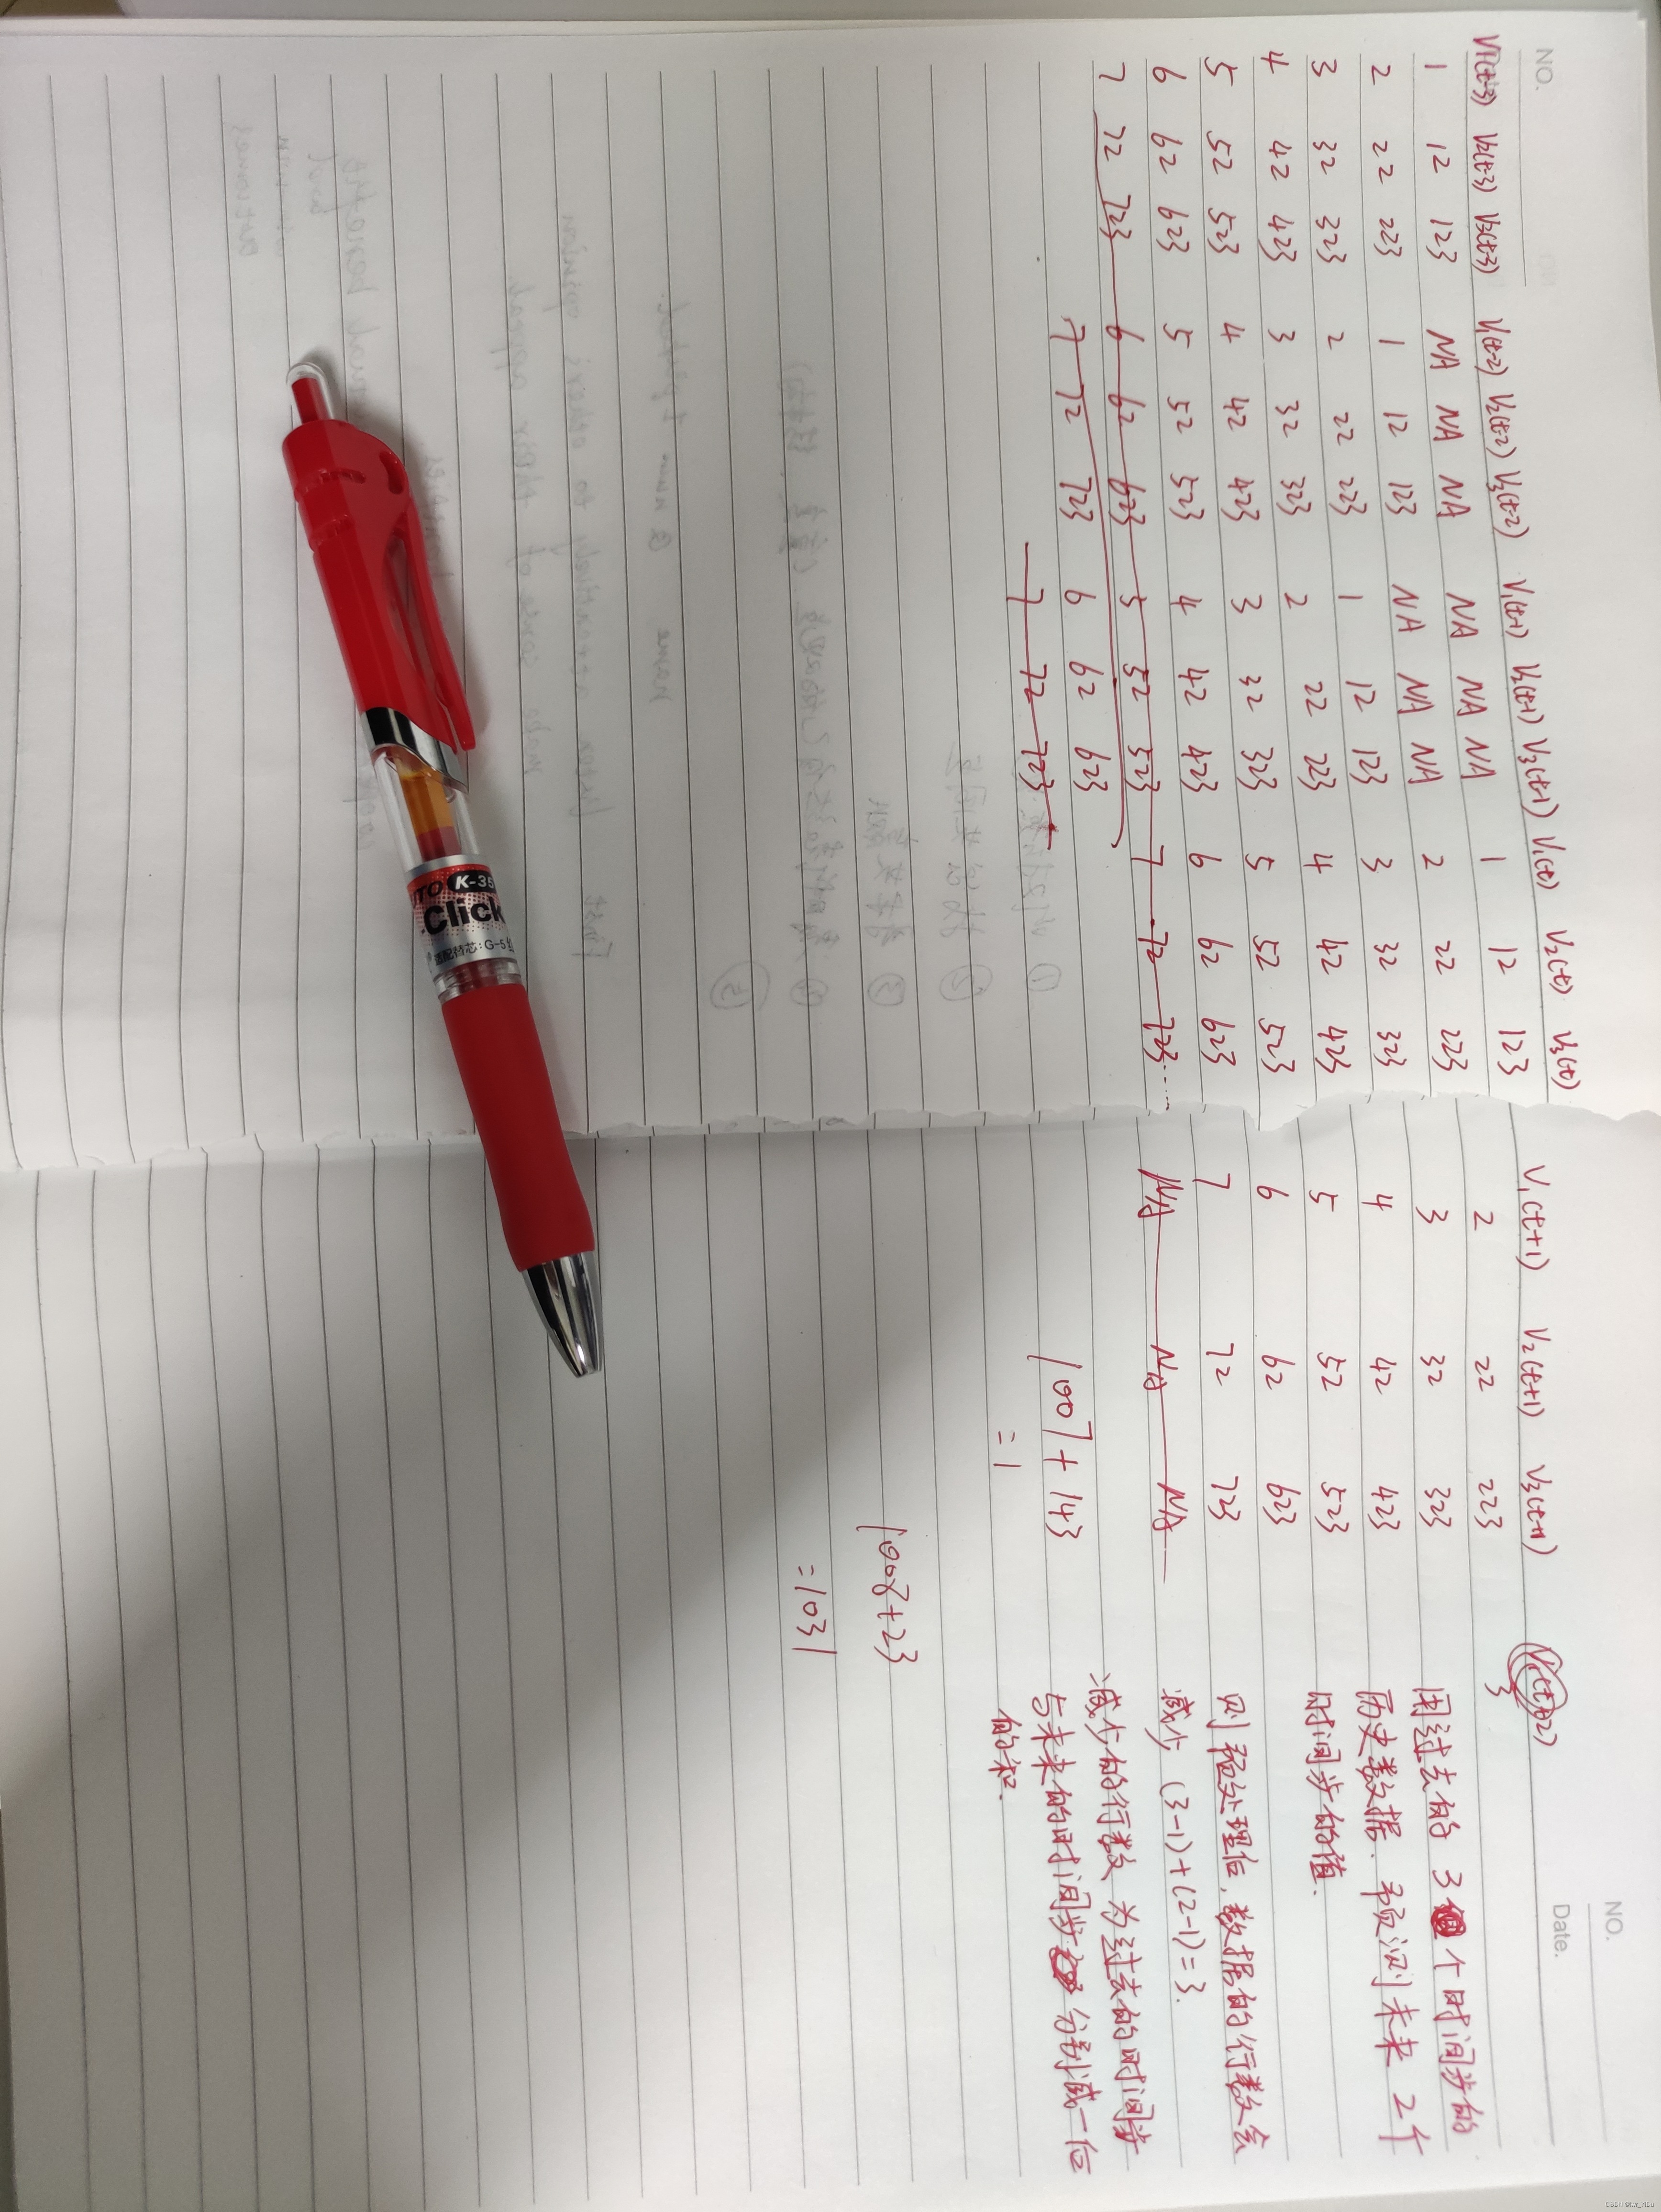 NO.
V1(t-3) V2(t-3) V3(t-3) V1(t-2) V2(t-2) V3(t-2) V1(t-1) V2(t-1) V3(t-1) V1(t) V2(t) V3(t)
1 12 123 NA NA NA NA NA NA 1 12 123
2 22 223 1 12 123 NA NA NA 2 22 223
3 32 323 2 22 223 1 12 123 3 32 323
4 42 423 3 32 323 2 22 223 4 42 423
5 52 523 4 42 423 3 32 323 5 52 523
6 62 623 5 52 523 4 42 423 6 62 623
7 72 723 6 62 623 5 52 523 7 72 723
7 72 723 6 62 623
7 72 723
NO.
Date.
V1(t+1) V2(t+1) V3(t+1) V1(t+2)
2 22 223 3
3 32 323
4 42 423
5 52 523
6 62 623
7 72 723
NA NA NA
用过去的 3 个时间步的
历史数据. 预测未来 2个
时间步的值.
则预处理后,数据的行数会
减少 (3-1)+(2-1)=3.
减少的行数 为过去的时间步
与未来的时间步 分别减一位
的和.
1007+143
=1
1008+23
=1031
K-35
Click
CSDN @lw_nba